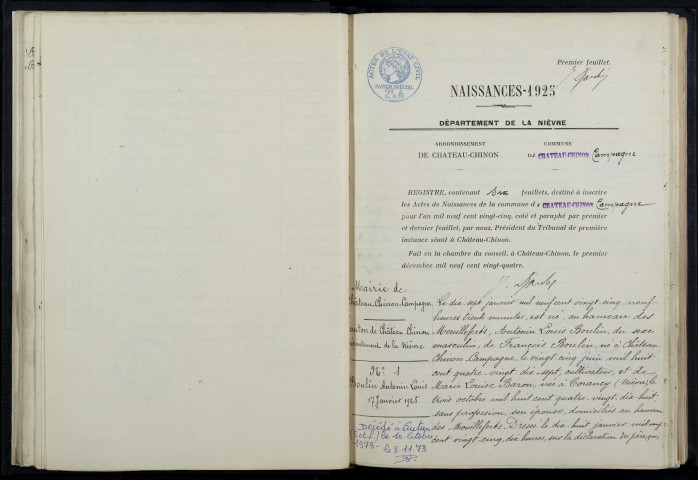 Premier feuillet.
ACTES DE L'ETAT CIVIL
PAPIER SPECIAL
NAISSANCES-1925
DÉPARTEMENT DE LA NIÈVRE
ARRONDISSEMENT
DE CHATEAU-CHINON
COMMUNE
DE CHATEAU-CHINON Campagne
REGISTRE, contenant six feuillets, destiné à inscrire
les Actes de Naissances de la commune de CHATEAU-CHINON Campagne
pour l'an mil neuf cent vingt-cinq, coté et paraphé par premier
et dernier feuillet, par nous, Président du Tribunal de première
instance séant à Château-Chinon.
Fait en la chambre du conseil, à Château-Chinon, le premier
décembre mil neuf cent vingt-quatre.
Mairie de
Château-Chinon-Campagne
canton de Château Chinon
département de la Nièvre
N° 1
Boulin Antonin Louis
17 Janvier 1925
Décédé à Autun
le 10 Octobre
1973
le 8.11.73
Le dix sept janvier mil neuf cent vingt-cinq, neuf
heures trente minutes, est né, au hameau des
Mouillefert, Antonin Louis Boulin, du sexe
masculin, de François Boulin, né à Château
Chinon Campagne le vingt cinq juin mil huit
cent quatre-vingt dix sept, cultivateur, et de
Marie Louise Baron, née à Corancy (Nièvre) le
trois octobre mil huit cent quatre-vingt-dix-huit
sans profession, son épouse, domiciliés au hameau
des Mouillefert. Dressé le dix huit janvier mil neuf
cent vingt-cinq, dix heures, sur la déclaration du père, qui